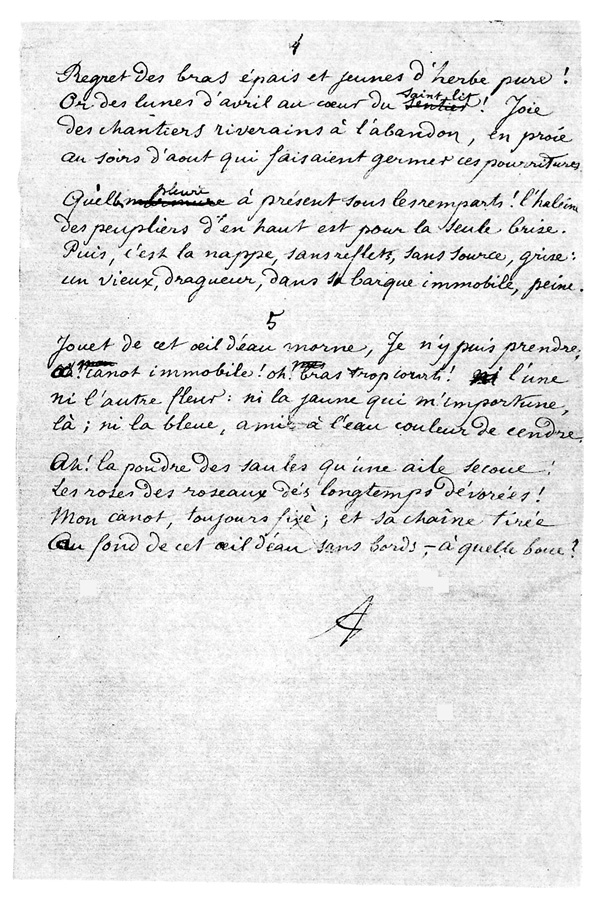 4
Regret des bras épais et jeunes d'herbe pure !
Or des lunes d'avril au cœur du saint lit ! Joie
des chantiers riverains à l'abandon, en proie
au soirs d'aout qui faisaient germer ces pourritures
Qu'elle pleure à présent sous les remparts ! l'haleine
des peupliers d'en haut est pour la seule brise.
Puis, c'est la nappe, sans reflets, sans source, grise :
un vieux, dragueur, dans sa barque immobile, peine.
5
Jouet de cet œil d'eau morne, Je n'y puis prendre,
oh ! mon canot immobile ! oh ! mes bras trop courts ! ni l'une
ni l'autre fleur : ni la jaune qui m'importune,
là ; ni la bleue, amie à l'eau couleur de cendre.
Ah ! la poudre des saules qu'une aile secoue !
Les roses des roseaux dès longtemps dévorées !
Mon canot, toujours fixe ; et sa chaîne tirée
Au fond de cet œil d'eau sans bords, – à quelle boue ?
A